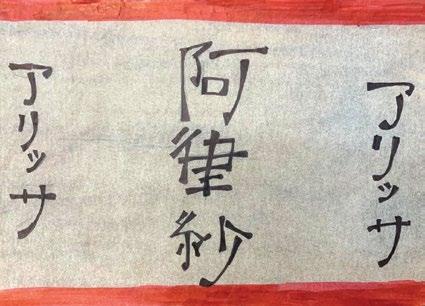 アリッサ
阿律紗
アリッサ